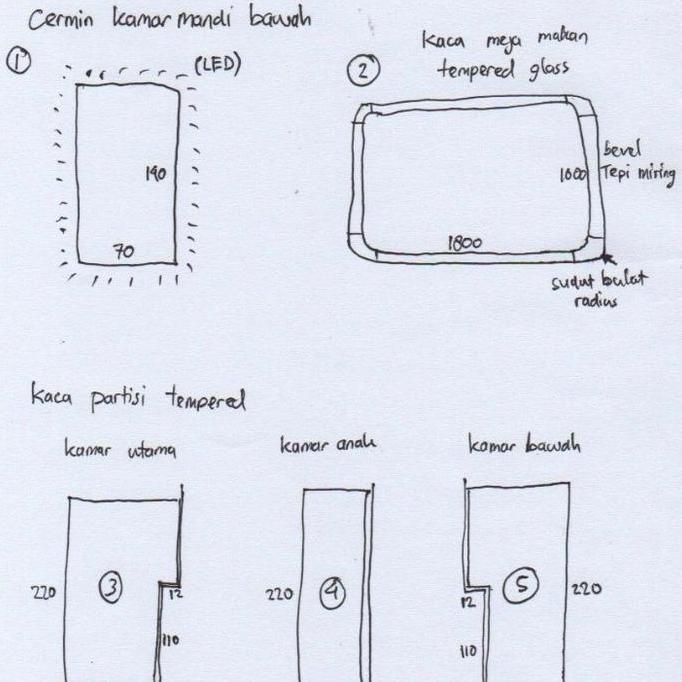 Cermin kamar mandi bawah
1
(LED)
190
70
Kaca meja makan
tempered glass
2
bevel
Tepi miring
1000
1800
sudut bulat
radius
Kaca partisi tempered
kamar utama
220
3
12
110
kamar anak
220
4
kamar bawah
5
220
12
110